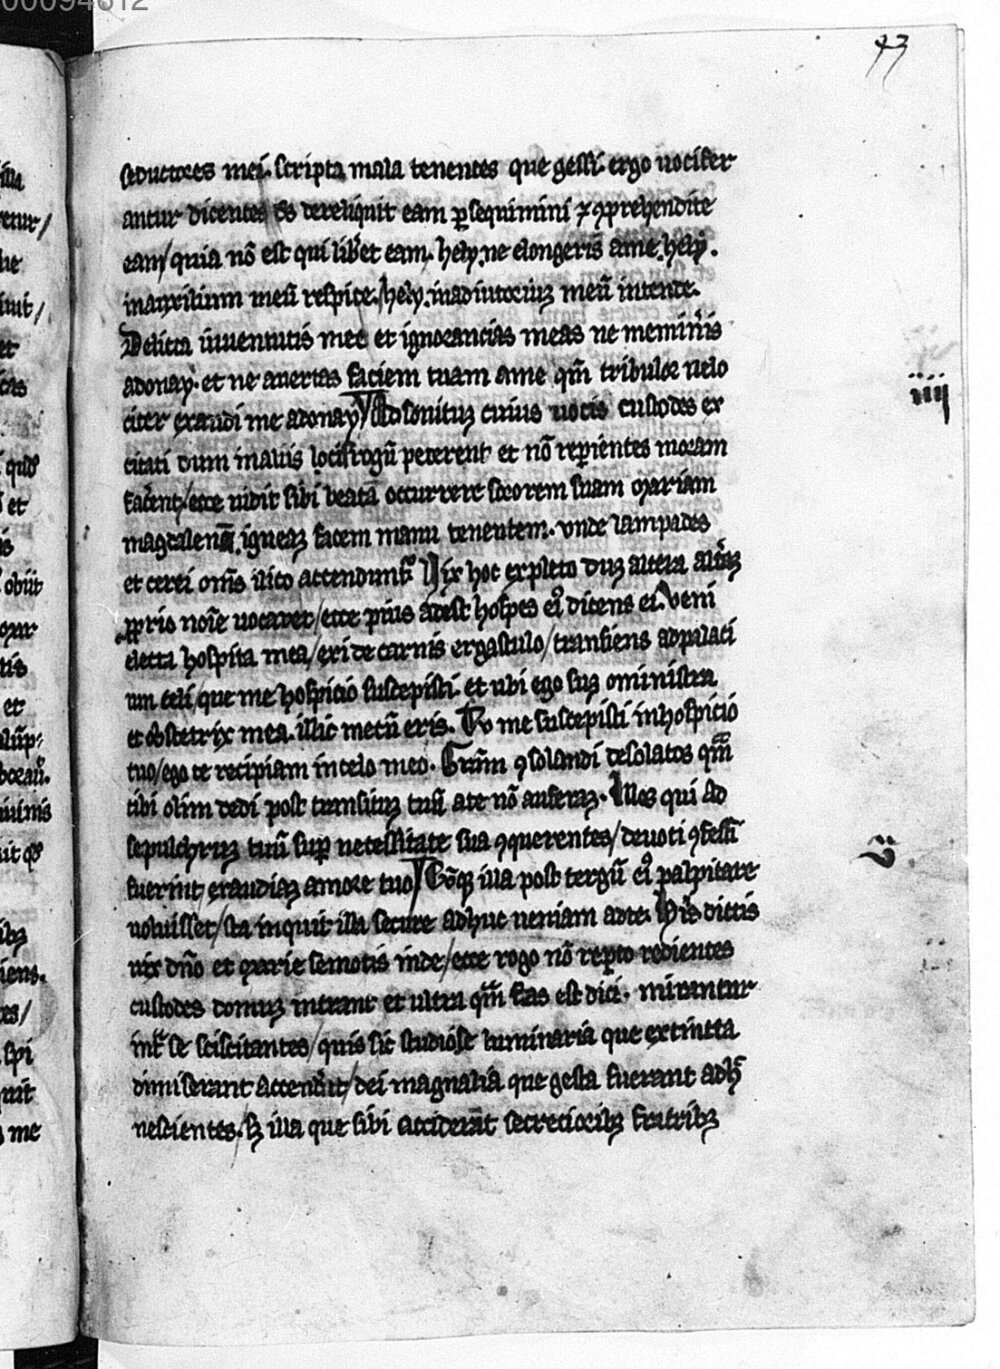 00094612
43
seductores mei. scripta mala tenentes que gessi. ergo uocifer
antur dicentes ds dereliquit eam ꝑsequimini ⁊ ꝯprehendite
eam/ quia nō est qui lib̾et eam. hely. ne elongeris a me. hely.
in auxilium meū respice. / hely. in adiutoriuꝫ meū intente.
Delicta iuuentutis mee et ignorancias meas ne memin̾is
adonay. et ne auertas faciem tuam a me qm̄ tribulor uelo
citer exaudi me adonay Ad sonituꝫ cuius uocis custodes ex
iiij
citati dum in aliis locis rogū peterent et nō reperientes moram
fac̾ent/ ecce uidit sibi beatā occurrere sororem suam mariam
magdalenā. igneaꝫ facem manu tenentem. vnde lampades
et cerei om̄s ilico accendunt᷑ Vix hoc expleto duꝫ altera alt̾aꝫ
ꝓprio noīe uocaret/ ecce pius adest hospes eꝰ dicens ei. Veni
electa hospita mea/ exi de carnis ergastulo/ transiens ad palaci
um celi/ que me hospicio suscepisti. et ubi ego suꝫ o ministra
et obstetrix mea. illic mecū eris. Tu me suscepisti in hospicio
tuo/ ego te recipiam in celo meo. Gr̄am ꝯsolandi desolatos qm̄
tibi olim dedi post transituꝫ tuū a te nō auferaꝫ. Illos qui ad
sepulchruꝫ tuū suꝑ necessitate sua ꝯquerentes/ deuoti ꝯfessi
fuerint/ exaudiaꝫ amore tuo Cūqꝫ illa post tergū eꝰ palpitare
uoluisset/ sta inquit illa secure adhuc ueniam ad te. Hiis dictis
uix dn̄o et marie semotis inde/ ecce rogo nō reꝑto redientes
custodes domuꝫ intrant et ultra qm̄ fas est dici. mirantur
int̾ se sciscitantes/ quis sic studiose luminaria que extincta
dimiserant accend̾it/ dei magnalia que gesta fuerant adh̾
nescientes. sꝫ illa que sibi acciderāt secrecioribꝫ fratribꝫ